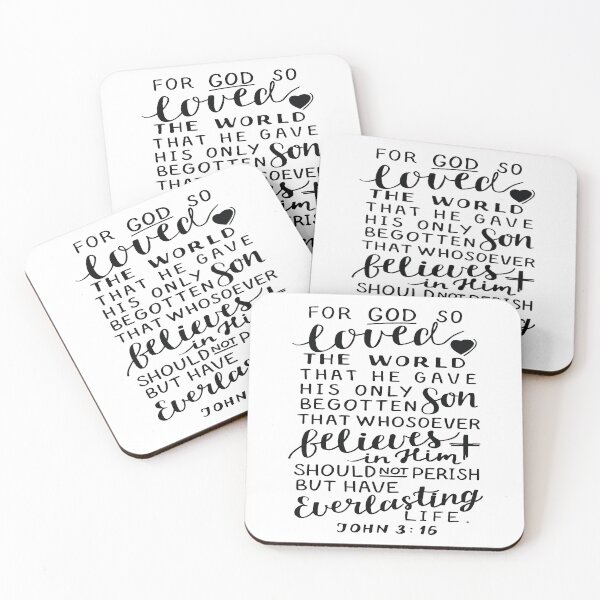 FOR GOD SO
loved
THE WORLD
THAT HE GAVE
HIS ONLY
BEGOTTEN Son
FOR GOD SO
loved
THE WORLD
THAT HE GAVE
HIS ONLY
BEGOTTEN Son
THAT WHOSOEVER
believes
in Him
SHOULD NOT PERISH
FOR GOD SO
loved
THE WORLD
THAT HE GAVE
HIS ONLY
BEGOTTEN Son
THAT WHOSOEVER
believes
in Him
SHOULD NOT
BUT HAVE
Everlasting
JOHN
FOR GOD SO
loved
THE WORLD
THAT HE GAVE
HIS ONLY
BEGOTTEN Son
THAT WHOSOEVER
believes
in Him
SHOULD NOT PERISH
BUT HAVE
Everlasting
LIFE.
JOHN 3:16